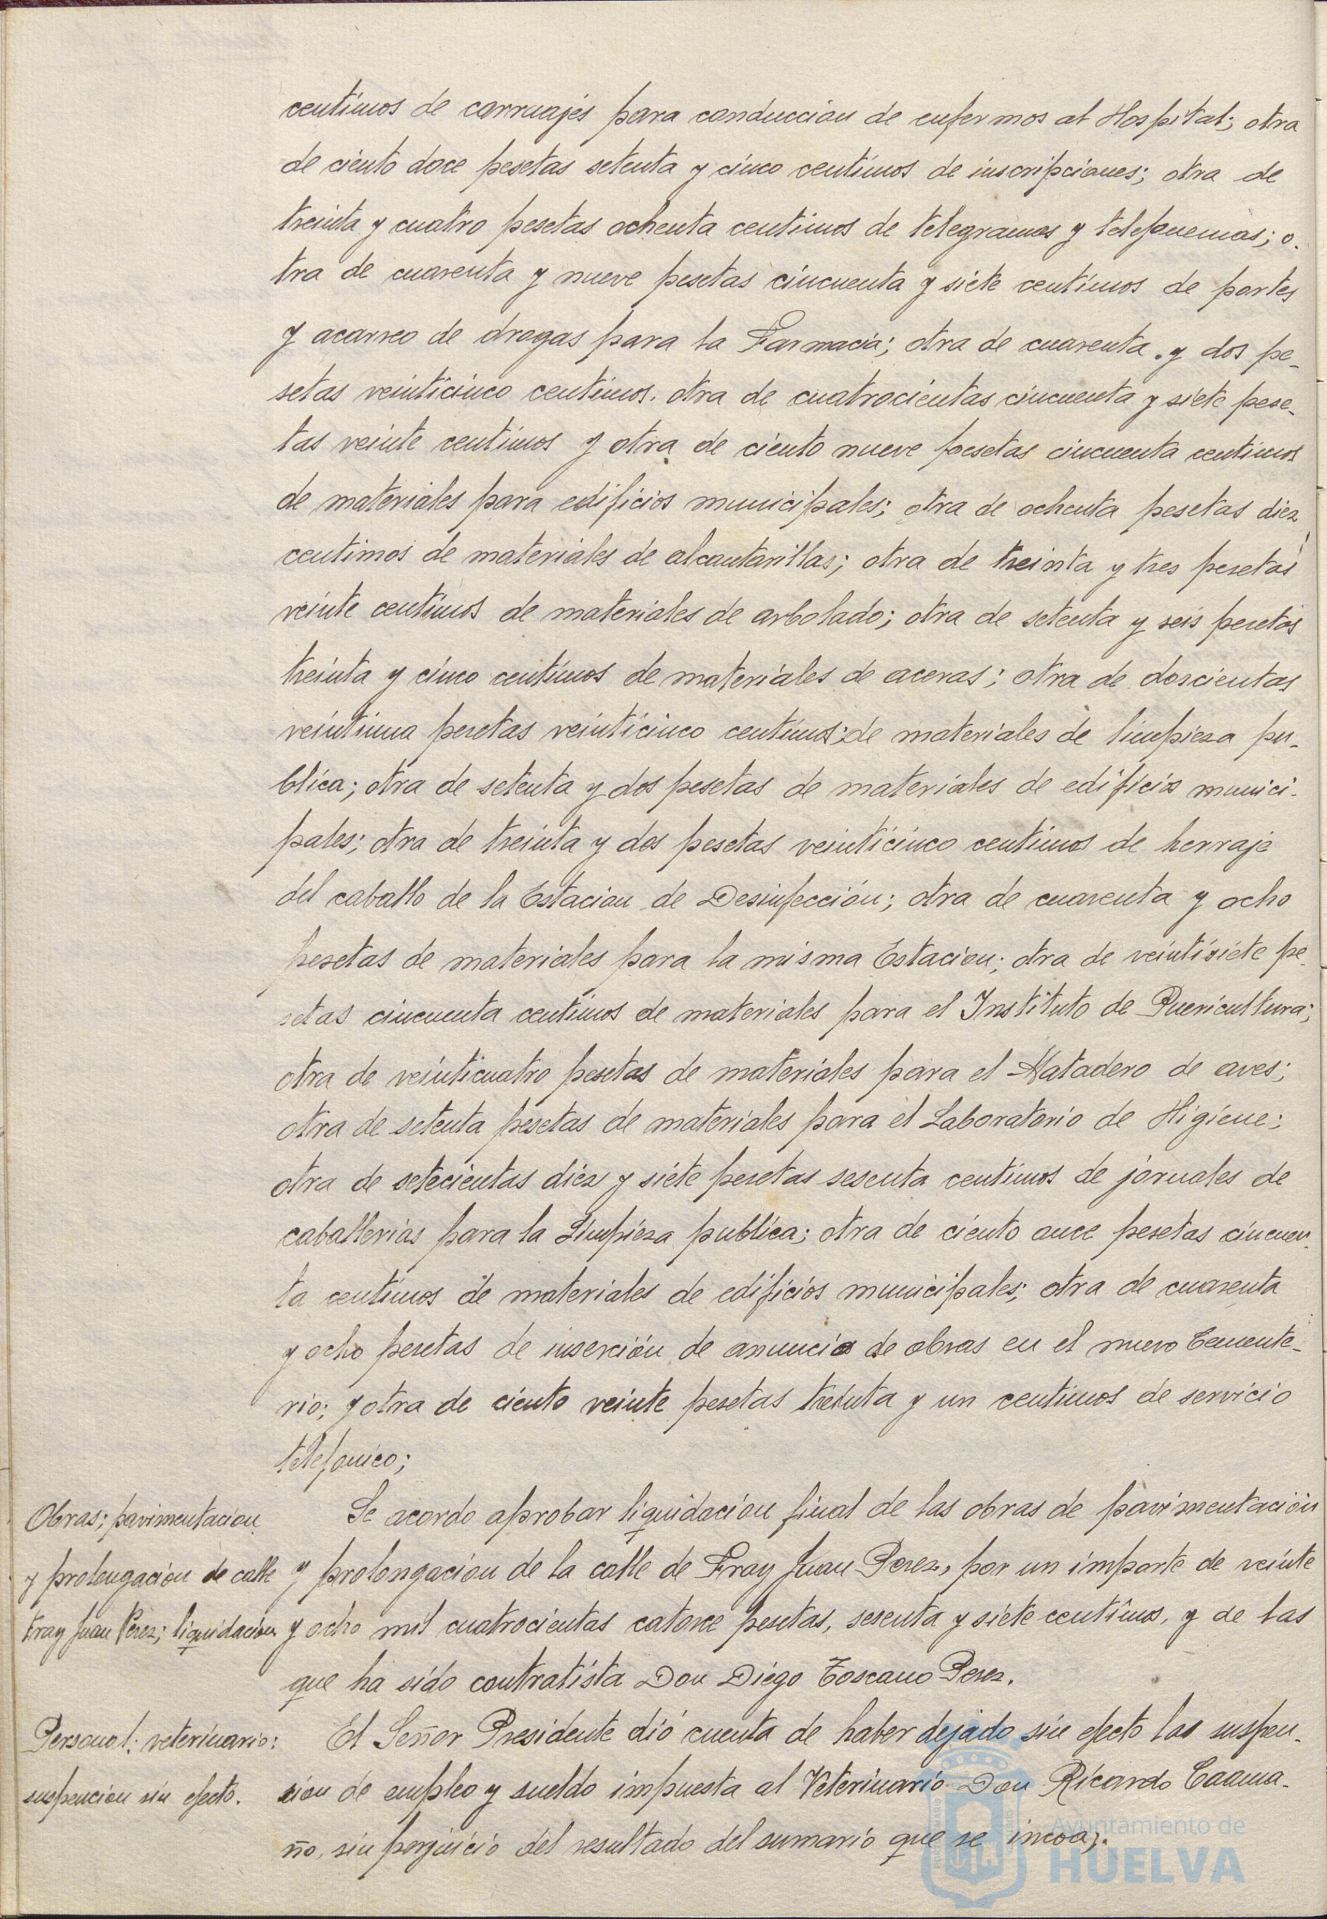 centimos de carruajes para conduccion de enfermos al Hospital; otra
de ciento doce pesetas setenta y cinco centimos de inscripciones; otra de
treinta y cuatro pesetas ochenta centimos de telegramas y telefonemas; o-
tra de cuarenta y nueve pesetas cincuenta y siete centimos de portes
y acarreo de drogas para la Farmacia; otra de cuarenta y dos pe-
setas veinticinco centimos. otra de cuatrocientas cincuenta y siete pese-
tas veinte centimos y otra de ciento nueve pesetas cincuenta centimos
de materiales para edificios municipales; otra de ochenta pesetas diez
centimos de materiales de alcantarillas; otra de treinta y tres pesetas
veinte centimos de materiales de arbolado; otra de setenta y seis pesetas
treinta y cinco centimos de materiales de aceras; otra de doscientas
veintiuna pesetas veinticinco centimos de materiales de limpieza pu-
blica; otra de setenta y dos pesetas de materiales de edificios munici-
pales; otra de treinta y dos pesetas veinticinco centimos de herraje
del caballo de la Estacion de Desinfección; otra de cuarenta y ocho
pesetas de materiales para la misma Estacion; otra de veintisiete pe-
setas cincuenta centimos de materiales para el Instituto de Puericultura;
otra de veinticuatro pesetas de materiales para el Matadero de aves;
otra de setenta pesetas de materiales para el Laboratorio de Higiene;
otra de setecientas diez y siete pesetas sesenta centimos de jornales de
caballerias para la Limpieza publica; otra de ciento once pesetas cincuen-
ta centimos de materiales de edificios municipales; otra de cuarenta
y ocho pesetas de inserción de anuncio de obras en el nuevo Cemente-
rio; y otra de ciento veinte pesetas treinta y un centimos de servicio
telefonico;
Obras; pavimentacion
y prolongacion de calle
Fray Juan Perez; liquidacion
Se acordo aprobar liquidacion final de las obras de pavimentacion
y prolongacion de la calle de Fray Juan Perez, por un importe de veinte
y ocho mil cuatrocientas catorce pesetas, sesenta y siete centimos, y de las
que ha sido contratista Don Diego Toscano Perez.
Personal; veterinario:
suspencion sin efecto.
El Señor Presidente dió cuenta de haber dejado sin efecto las suspen-
sion de empleo y sueldo impuesta al Veterinario Don Ricardo Caama-
ño, sin perjuicio del resultado del sumario que se incoa;.
Ayuntamiento de
HUELVA